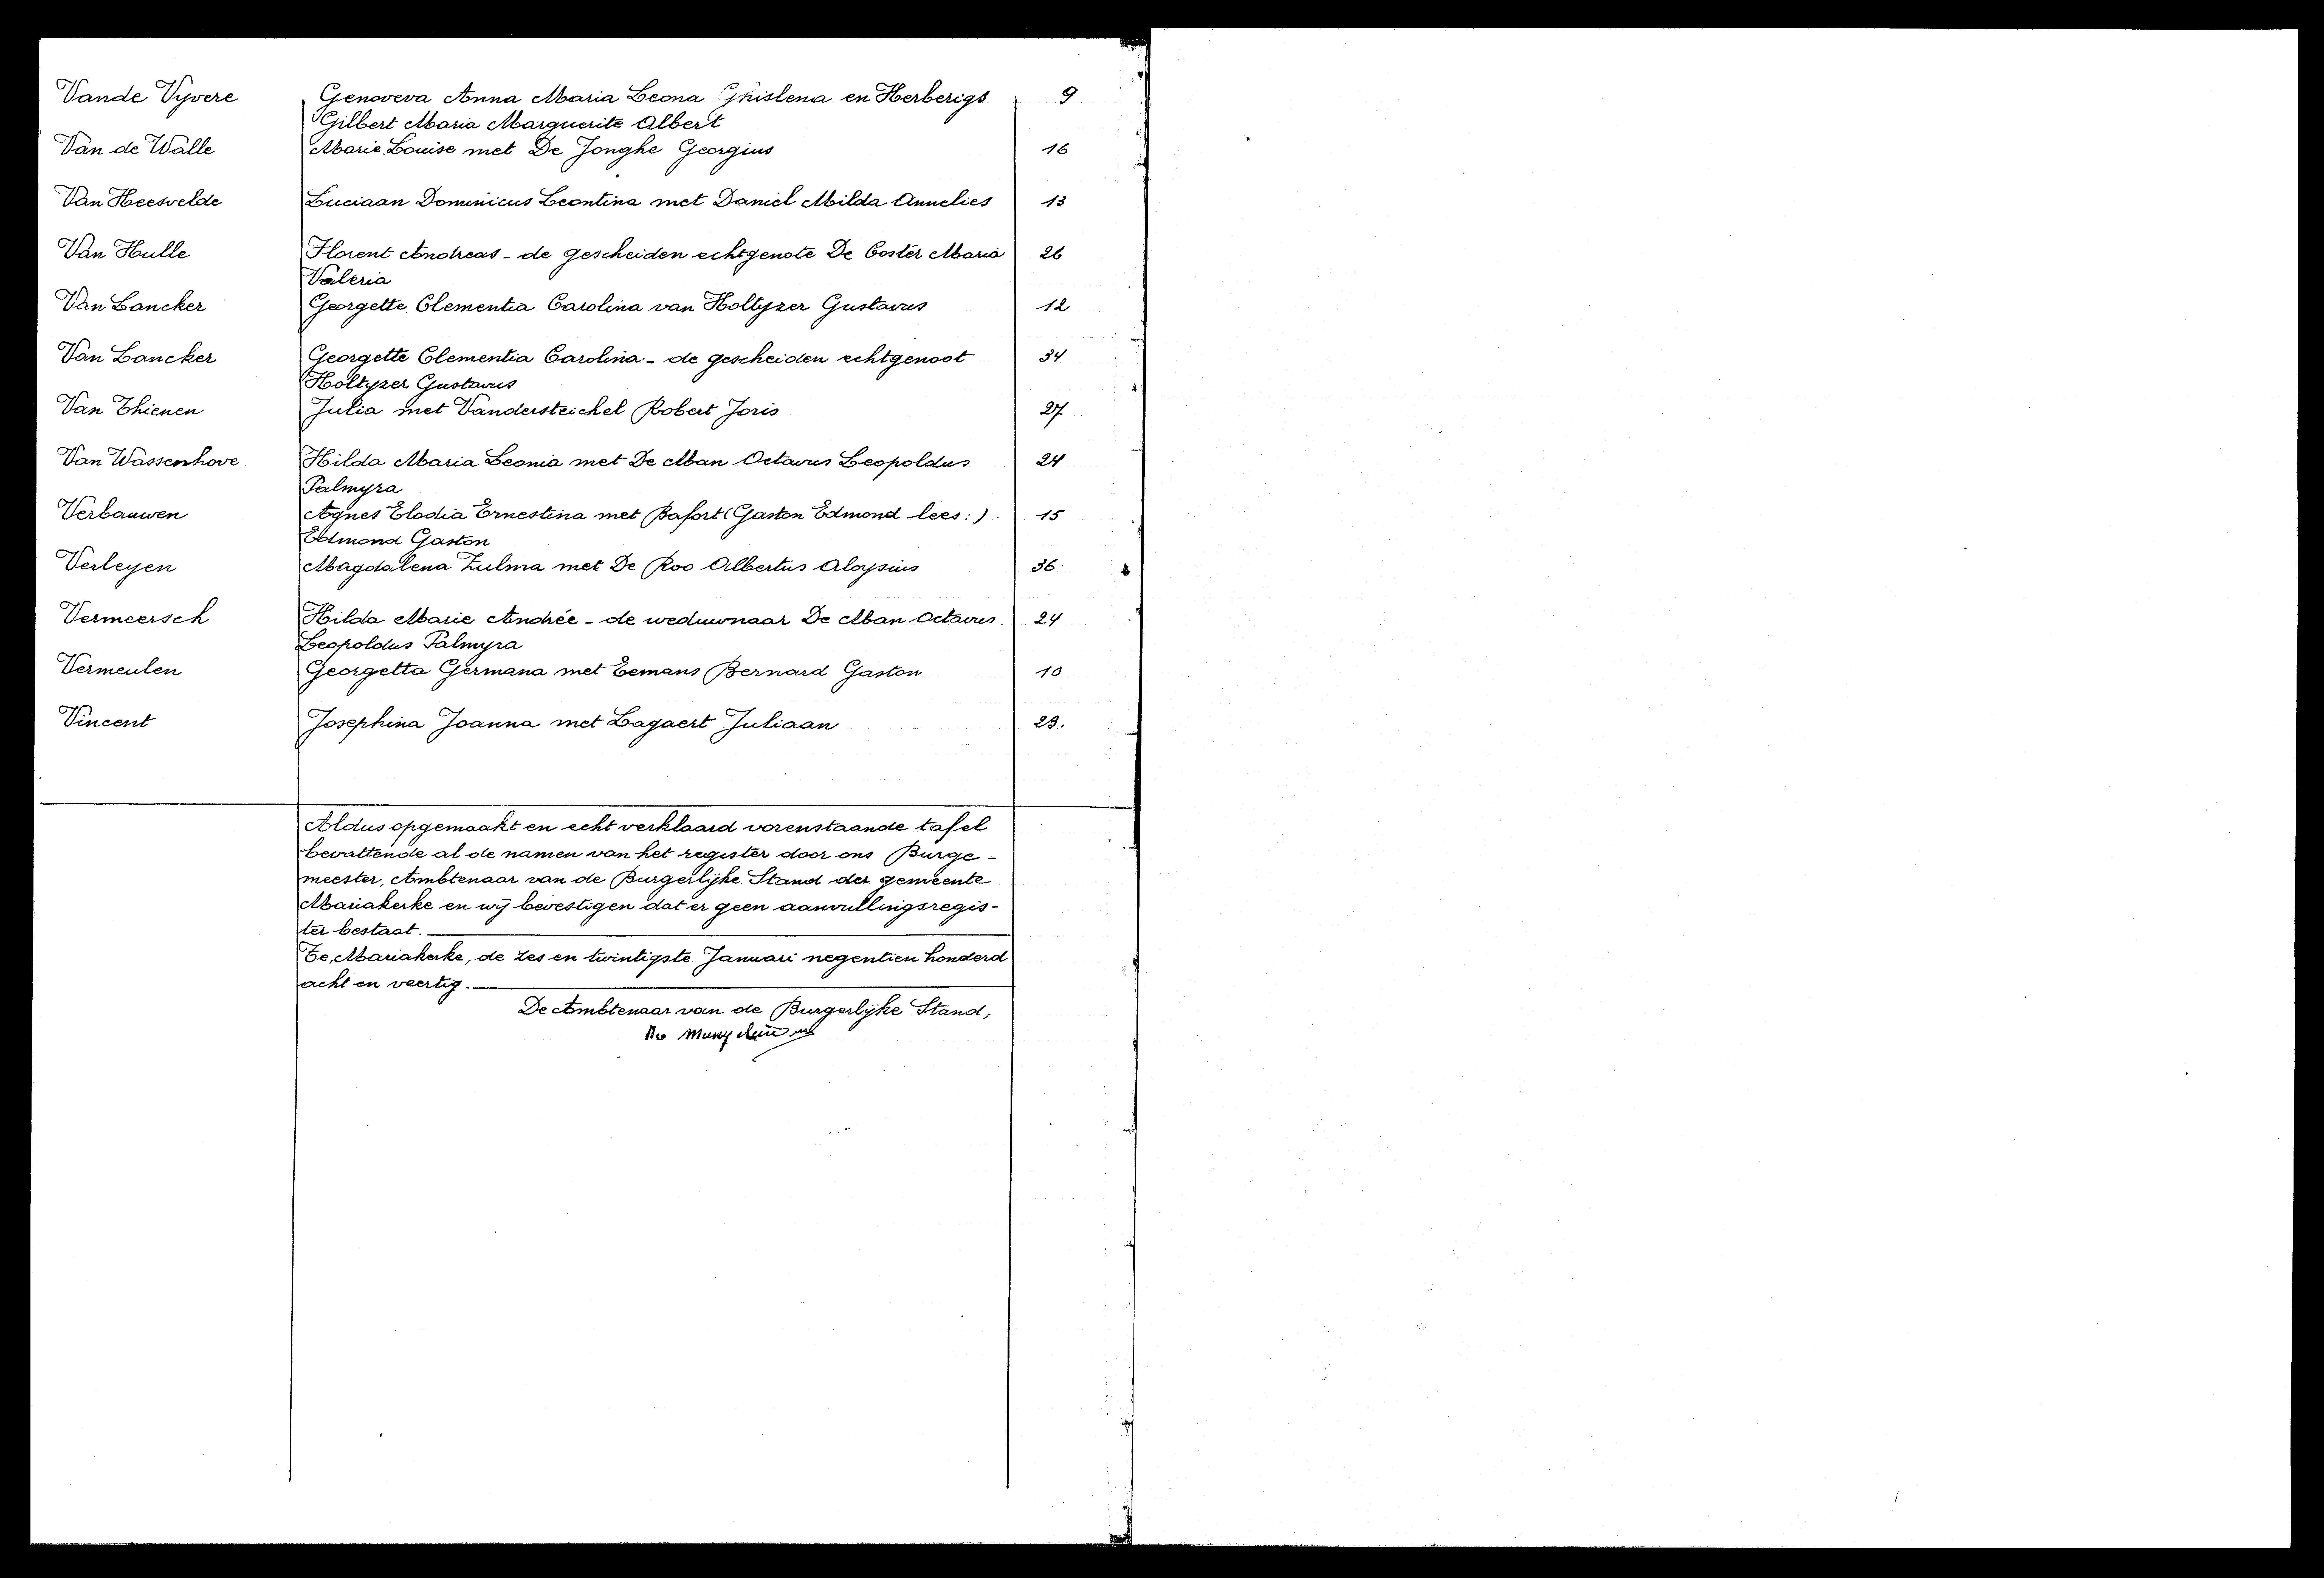 Vande Vyvere Genoveva Anna Maria Leona Ghislena en Herberigs 9
Gilbert Maria Marguerite Albert
Van de Walle Marie Louise met De Jonghe Georgius 16
Van Heesvelde Luciaan Dominicus Leontina met Daniel Milda Annelies 13
Van Hulle Florent Andreas - de gescheiden echtgenote De Coster Maria 26
Valeria
Van Lancker Georgette Clementia Carolina van Holtyzer Gustavus 12
Van Lancker Georgette Clementia Carolina - de gescheiden echtgenoot 34
Holtyzer Gustavus
Van Thienen Julia met Vandersteichel Robert Joris 27
Van Wassenhove Hilda Maria Leonia met De Man Octavus Leopoldus 24
Palmyra
Verbauwen Agnes Elodia Ernestina met Bafort (Gaston Edmond lees:) 15
Edmond Gaston
Verleyen Magdalena Zulma met De Roo Albertus Aloysius 36
Vermeersch Hilda Marie Andrée - de weduwnaar De Man Octavus 24
Leopoldus Palmyra
Vermeulen Georgetta Germana met Eemans Bernard Gaston 10
Vincent Josephina Joanna met Lagaert Juliaan 23.
Aldus opgemaakt en echt verklaard vorenstaande tafel
bevattende al de namen van het register door ons Burge-
meester, Ambtenaar van de Burgerlijke Stand der gemeente
Mariakerke en wij bevestigen dat er geen aanvullingsregis-
ter bestaat.
Te, Mariakerke, de zes en twintigste Januari negentien honderd
acht en veertig.
De Ambtenaar van de Burgerlijke Stand,